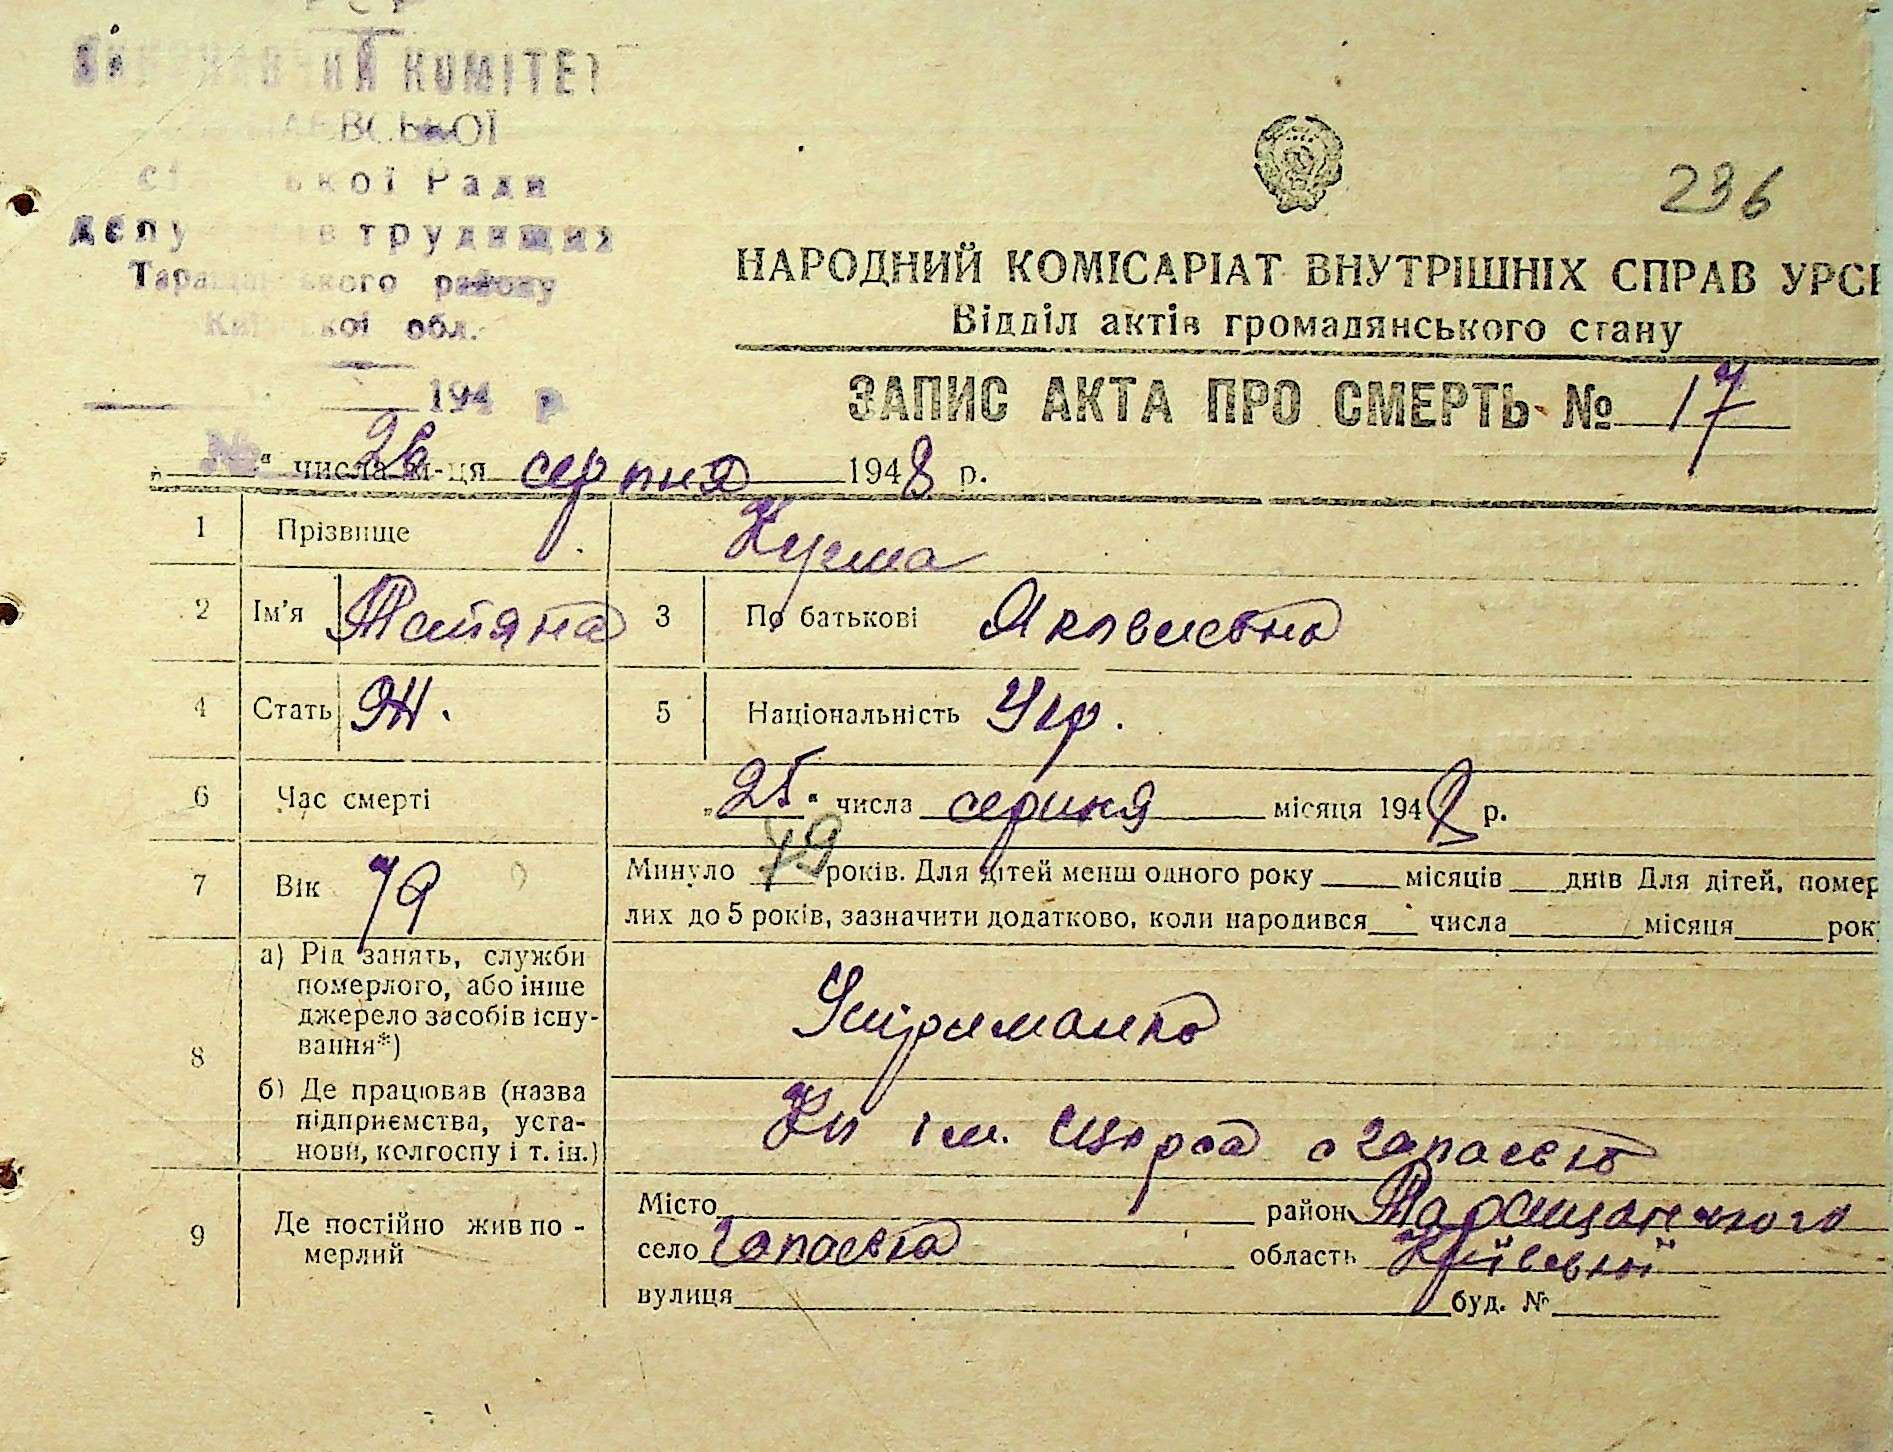 КОМІТЕТ
Ради
трудящих
Таращанського району
Київської обл.
194 р.
236
НАРОДНИЙ КОМІСАРІАТ ВНУТРІШНІХ СПРАВ УРСР
Відділ актів громадянського стану
ЗАПИС АКТА ПРО СМЕРТЬ № 17
„ № “ числа 26 м-ця серпня 1948 р.
1 Прізвище
2 Ім’я Татяна 3 По батькові Яковлевна
4 Стать Ж. 5 Національність Укр.
6 Час смерті „25“ числа серпня місяця 1948 р.
7 Вік 79 Минуло 79 років. Для дітей менш одного року місяців днів Для дітей, помер
лих до 5 років, зазначити додатково, коли народився числа місяця рок
8 а) Рід занять, служби
померлого, або інше
джерело засобів існу-
вання*)
Утриманка
б) Де працював (назва
підприємства, уста-
нови, колгоспу і т. ін.)
Кп ім. Щорса с Чапаєвка
9 Де постійно жив по-
мерлий
Місто район Таращанського
село Чапаєвка область Київської
вулиця буд. №